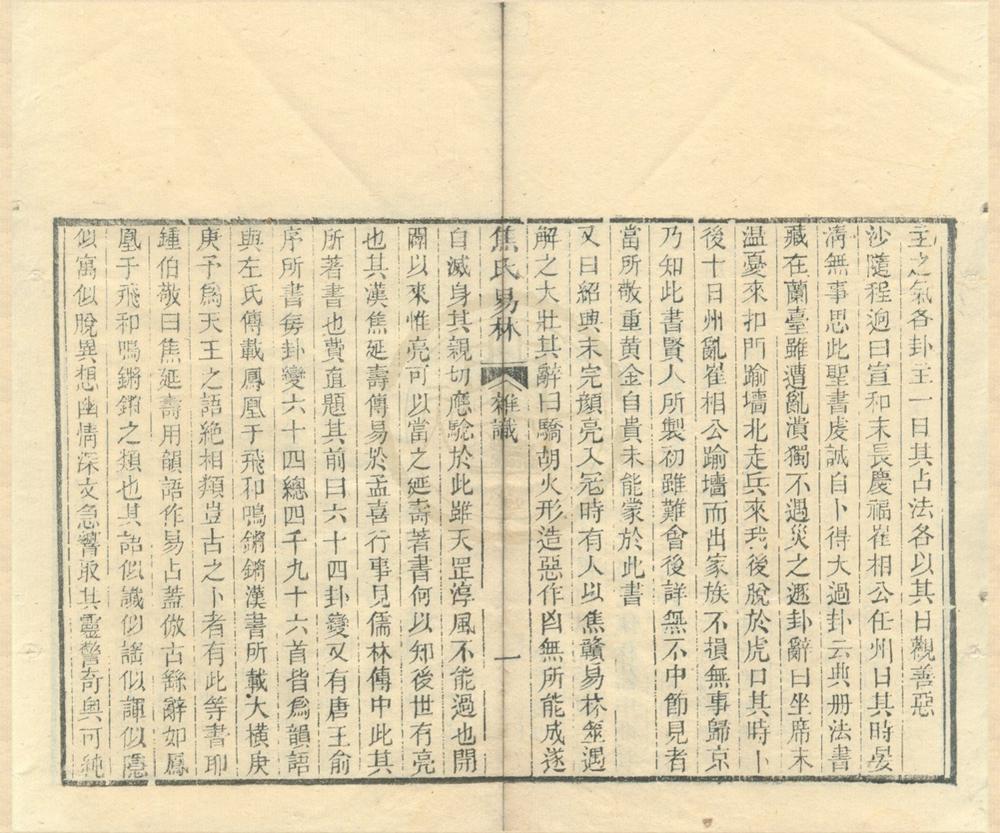 主之氣各卦主一日其占法各以其日觀善惡
沙隨程逈曰宣和末長慶福崔相公任州日其時晏
清無事思此聖書虔誠自卜得大過卦云典册法書
藏在蘭臺雖遭亂潰獨不遇災之遯卦辭曰坐席未
温憂來扣門踰墻北走兵來我後脫於虎口其時卜
後十日州亂崔相公踰墻而出家族不損無事歸京
乃知此書賢人所製初雖難會後詳無不中節見者
當所敬重黄金自貴未能蒙於此書
又曰紹興末完顏亮入宼時有人以焦贛易林筮遇
解之大壯其辭曰驕胡火形造惡作凶無所能成遂
焦氏易林 雜識 一
自滅身其親切應驗於此雖天罡淳風不能過也開
闢以來惟亮可以當之延壽著書何以知後世有亮
也其漢焦延壽傳易於孟喜行事見儒林傳中此其
所著書也費直題其前曰六十四卦變又有唐王俞
序所書每卦變六十四總四千九十六首皆爲韻語
與左氏傳載鳳凰于飛和鳴鏘鏘漢書所載大橫庚
庚予爲天王之語絶相類豈古之卜者有此等書耶
鍾伯敬曰焦延壽用韻語作易占蓋倣古繇辭如鳳
凰于飛和鳴鏘鏘之類也其語似讖似謠似諢似隱
似寓似脫異想幽情深文急響取其靈警奇奥可純